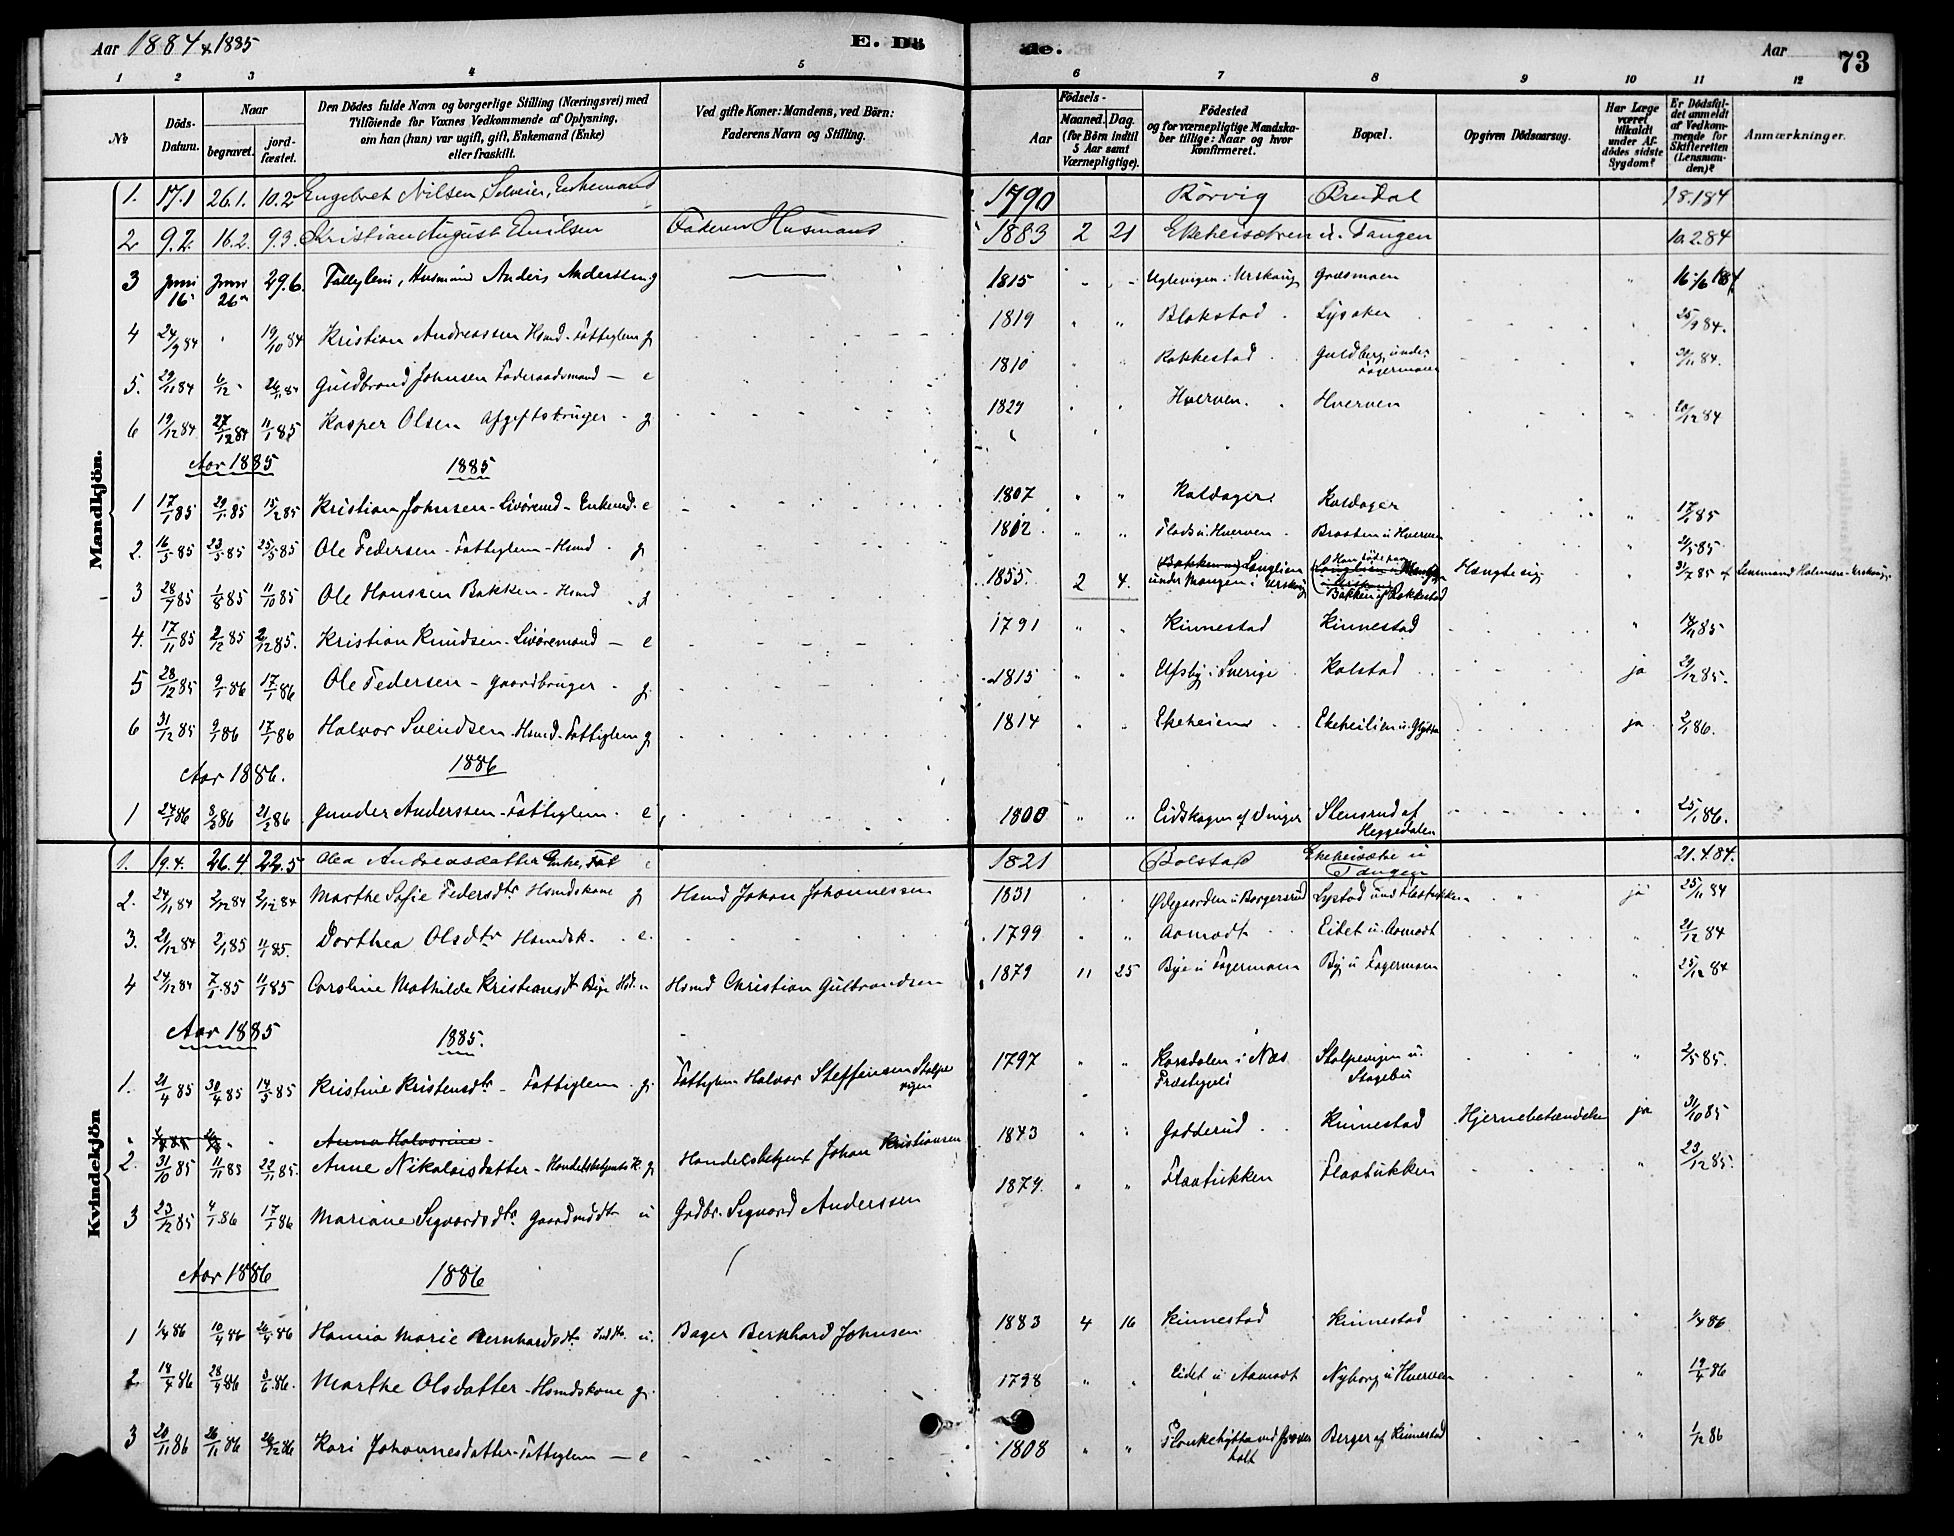 Aar 1884 & 1885 E. Dö de. Aar 73
1 2 3 4 5 6 7 8 9 10 11 12
№ Döds-Datum. Naar begravet. jordfæstet. Den Dödes fulde Navn og borgerlige Stilling (Næringsvei) med Tilföiende for Voxnes Vedkommende af Oplysning, om han (hun) var ugift, gift, Enkemand (Enke) eller fraskilt. Ved gifte Koner: Mandens, ved Börn: Faderens Navn og Stilling. Födsels- Aar Maaned. Dag. (for Börn indtil 5 Aar samt Værnepligtige). Födested og for værnepligtige Mandskaber tillige: Naar og hvor konfirmeret. Bopæl. Opgiven Dödsaarsag. Har Læge været tilkaldt under Afdödes sidste Sygdom? Er Dödsfaldet anmeldt af Vedkommende for Skifteretten (Lensmanden)? Anmærkninger.
Mandkjön.
1. 17.1 26.1. 10.2 Engebret Nilsen Enkemand 1790 Rörvig 18.1 84
2 9.2. 16.2. 9.3. Kristian August Emilsen Faderen Husmand 1883 2 21 Ekeheisætren u. Tangen 10.2.84
3 Juni 16 Juni 26 29.6. Fattiglem, Husmand Anders Anderssen g 1815 Uglevigen i Urskoug Grdsmoen 16/6 1884
4 24/9 84 " 19/10 84 Kristian Andreassen Hsmd. Fattiglem g 1819 Blakstad Lysaker 25/9 84.
5. 29/11 84 6/12 " Guldbrand Johnsen Föderaadsmand - e 1810 Rakkestad Guldberg under Fagermoen
6 19/12 84 27/12 84 11/1 85 Kasper Olsen Afgiftsbruger - g. 1829 Hverven. Hverven 20/12 84
Aar 1885 1885
1 17/1 85 29/1 85 15/2 85 Kristian Johnsen - Livöremd - Enkemd. e 1807 Kaldager Kaldager 17/1 85
2. 16/5 85 23/5 85 25/5 85 Ole Pedersen - Fattiglem - Hsmd. g 1802 Plads u. Hverven Braaten u Hverven 21/5 85
3 28/7 85 1/8 85 11/10 85 Ole Hanssen Bakken - Hsmd g 1855. 2 4. Langlien under Mangen i Urskoug Bakken af Rakkestad Hængte sig 31/7 85 Lensmand Holmsen Urskoug
4. 17/11 85 2/12 85 2/12 85. Kristian Knudsen - Livöremand - e 1791 Kinnestad Kinnestad " 19/11 85
5 28/12 85 9/1 86 17/1 86 Ole Pedersen - Gaardbruger - g. 1815 i Sverige Kolstad ja 29/12 85.
6 31/12 85 9/1 86 17/1 86 Halvor Svendsen - Hsmd - Fattiglem g 1814 Ekeheien Ekeheilien u. ja 2/1 86.
Aar 1886. 1886
1 24/1 86 3/2 86 21/2 86 Gunder Anderssen - Fattiglem. e 1800 Eidskogen af Vinger Stensrud af Heggedalen 25/1 86.
Kvindekjön
1. 19.4. 26.4 22.5 Olea Andreasdatter Enke, Fat e 1821 Bolstad Ekeheisætre u Tangen 21.4.84.
2. 24/11 84 2/12 84 2/12 84 Marthe Sofie Pedersdtr Hsmdskone g Hsmd Johan Johannessen 1831 Ödegaarden u Borgersrud Lystad und Flaatukken ja 25/11 84
3. 21/12 84 2/1 85 11/1 85. Dorthea Olsdtr Hsmdsk. e. 1799 Aamodt Eidet u. Aamodt 21/12 84
4 24/12 84 7/1 85 11/1 85 Caroline Mathilde Kristiansdt Bye Hsd. u Hsmd Christian Gulbrandsen 1879 11 25 Bye u Fagermoen By u Fagermoen 25/12 84
Aar 1885 1885.
1. 21/4 85 30/4 85 14/5 85 Kristine Kristensdtr - Fattiglem. g. Fattiglem Halvor Steffensen Stolpevigen 1797 Korsdalen i Næs Præstegjeld Stolpevigen u. Stagebu 2/5 85.
Anna Halvorine
2. 31/10 85 11/11 85 22/11 85. Anne Nikolaisdatter - Handelsbetjents K. g Handelsbetjent Johan Kristiansen 1843 Gadderud Kinnestad Hjernebetændelse ja 31/10 85
3 23/12 85 4/1 86 17/1 86 Mariane Sigvardsdtr. Gaardmdtr u Grdbr. Sigvard Anderssen 1879. Flaatukken Flaatukken 23/12 85.
Aar 1886 1886
1 1/4 86 10/4 86 26/4 86 Hanna Marie Bernhardsdtr. Inddtr. u. Bager Bernhard Johnsen 1883 4 16 Kinnestad Kinnestad 1/4 86
2. 18/4 86 28/4 86 3/6 86. Marthe Olsdatter - Hsmdskone g. 1798 Eidet u Aamodt Nyborg u Hverven 19/4 86
3 20/11 86 26/11 86 26/12 86 Kari Johannesdatter - Fattiglem - e 1808 Plankehytta ved Berger af Kinnestad 1/12 86